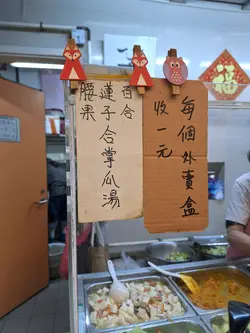 每個外賣盒
收一元
百合
蓮子合掌瓜湯
腰果
福